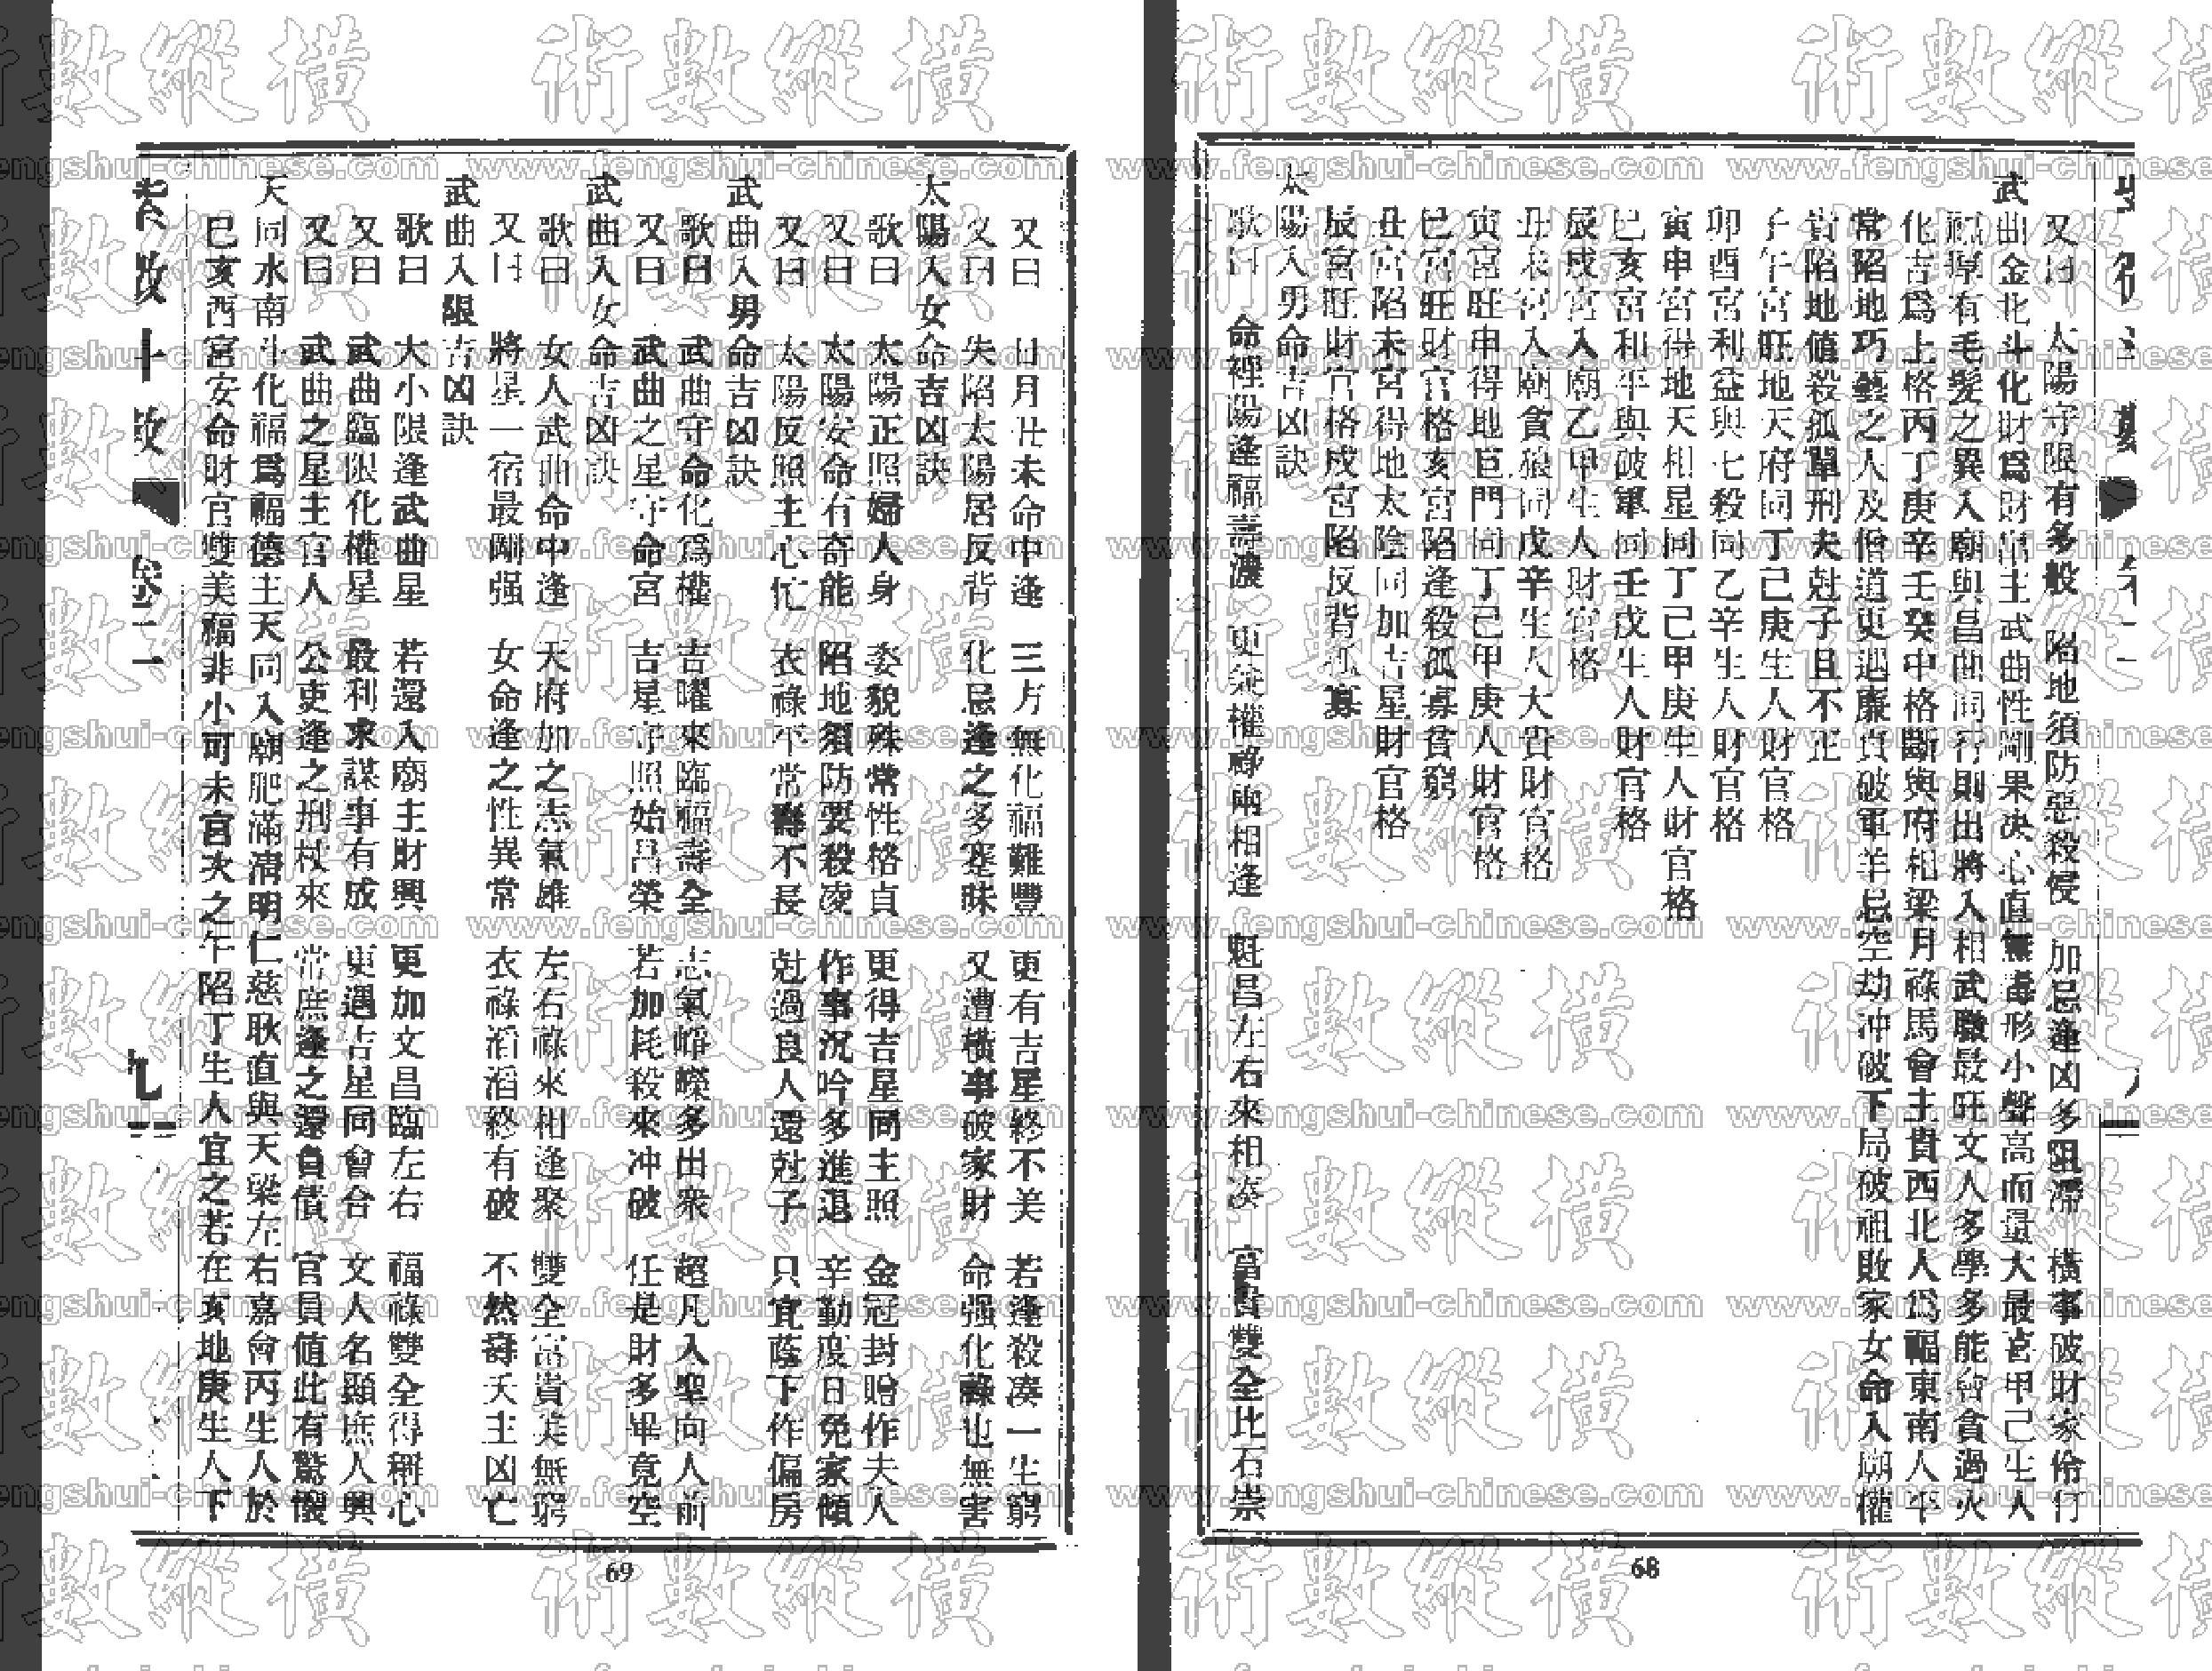 又曰 太陽守限有多般 陷地須防惡殺侵 加忌逢凶多阻滯 橫事破財家伶仃
武曲金北斗化財爲財帛主武曲性剛果決心直無毒形小聲高而量大最喜甲己生人
福厚有毛髮之異入廟與昌曲同行則出將入相武職最旺文人多學多能會貪過火
化吉爲上格丙丁庚辛壬癸中格斷與府相梁月祿馬會主貴西北人爲福東南人平
常陷地巧藝之人及僧道更遇廉貞破軍羊忌空劫冲破下局破祖敗家女命入廟權
貴陷地値殺孤單刑夫尅子且不正
子午宮旺地天府同丁己庚生人財官格
卯酉宮利益與七殺同乙辛生人財官格
寅申宮得地天相星同丁己甲庚生人財官格
巳亥宮和平與破軍同壬戊生人財官格
辰戌宮入廟乙甲生人財官格
丑未宮入廟貪狼同戊辛生人大貴財官格
寅宮旺申得地巨門同丁己甲庚人財官格
巳宮旺財官格亥宮陷逢殺孤寡貧窮
丑宮陷未宮得地太陰同加吉星財官格
辰宮旺財官格戌宮陷反背孤寡
太陽入男命吉凶訣
歌曰 命裡陽逢福壽濃 更兼權祿兩相逢 魁昌左右來相湊 富貴雙全比石崇
68
又曰 日月丑未命中逢 三方無化福難豐 更有吉星終不美 若逢殺湊一生窮
又曰 失陷太陽居反背 化忌逢之多蹇昧 又遭橫事破家財 命强化祿也無害
太陽入女命吉凶訣
歌曰 太陽正照婦人身 姿貌殊常性格貞 更得吉星同主照 金冠封贈作夫人
又曰 太陽安命有奇能 陷地須防要殺凌 作事沉吟多進退 辛勤度日免家傾
又曰 太陽反照主心忙 衣祿平常壽不長 尅過良人還尅子 只宜蔭下作偏房
武曲入男命吉凶訣
歌曰 武曲守命化爲權 吉曜來臨福壽全 志氣崢嶸多出衆 超凡入聖向人前
又曰 武曲之星守命宮 吉星守照始昌榮 若加耗殺來冲破 任是財多畢竟空
武曲入女命吉凶訣
歌曰 女人武曲命中逢 天府加之志氣雄 左右祿來相逢聚 雙全富貴美無窮
又曰 將星一宿最剛强 女命逢之性異常 衣祿滔滔終有破 不然壽夭主凶亡
武曲入限吉凶訣
歌曰 大小限逢武曲星 若還入廟主財興 更加文昌臨左右 福祿雙全得稱心
又曰 武曲臨限化權星 最利求謀事有成 更遇吉星同會合 文人名顯庶人興
又曰 武曲之星主官人 公吏逢之刑杖來 常庶逢之還負債 官員値此有驚懷
天同水南斗化福爲福德主天同入廟肥滿清明仁慈耿直與天梁左右嘉會丙生人於
巳亥酉宮安命財官雙美福非小可未宮次之午陷丁生人宜之若在亥地庚生人下
卷二
九
69